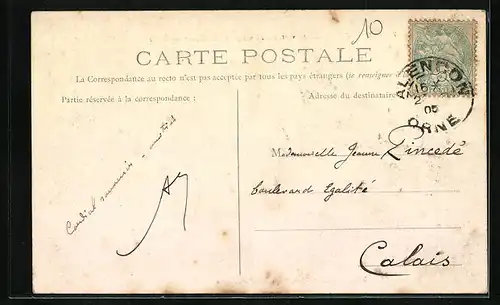 10
CARTE POSTALE
La Correspondance au recto n'est pas acceptée par tous les pays étrangers (se renseigner à la
Partie réservée à la correspondance :
Adresse du destinataire
ALENÇON
16
05
ORNE
Cordial souvenir
Mademoiselle Jeanne Pincedé
boulevard Egalité
Calais